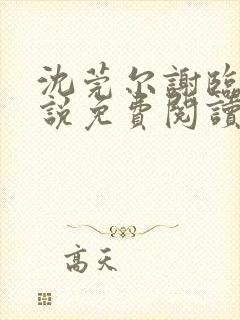 沈莞尔謝臨
説免費閱讀
高天